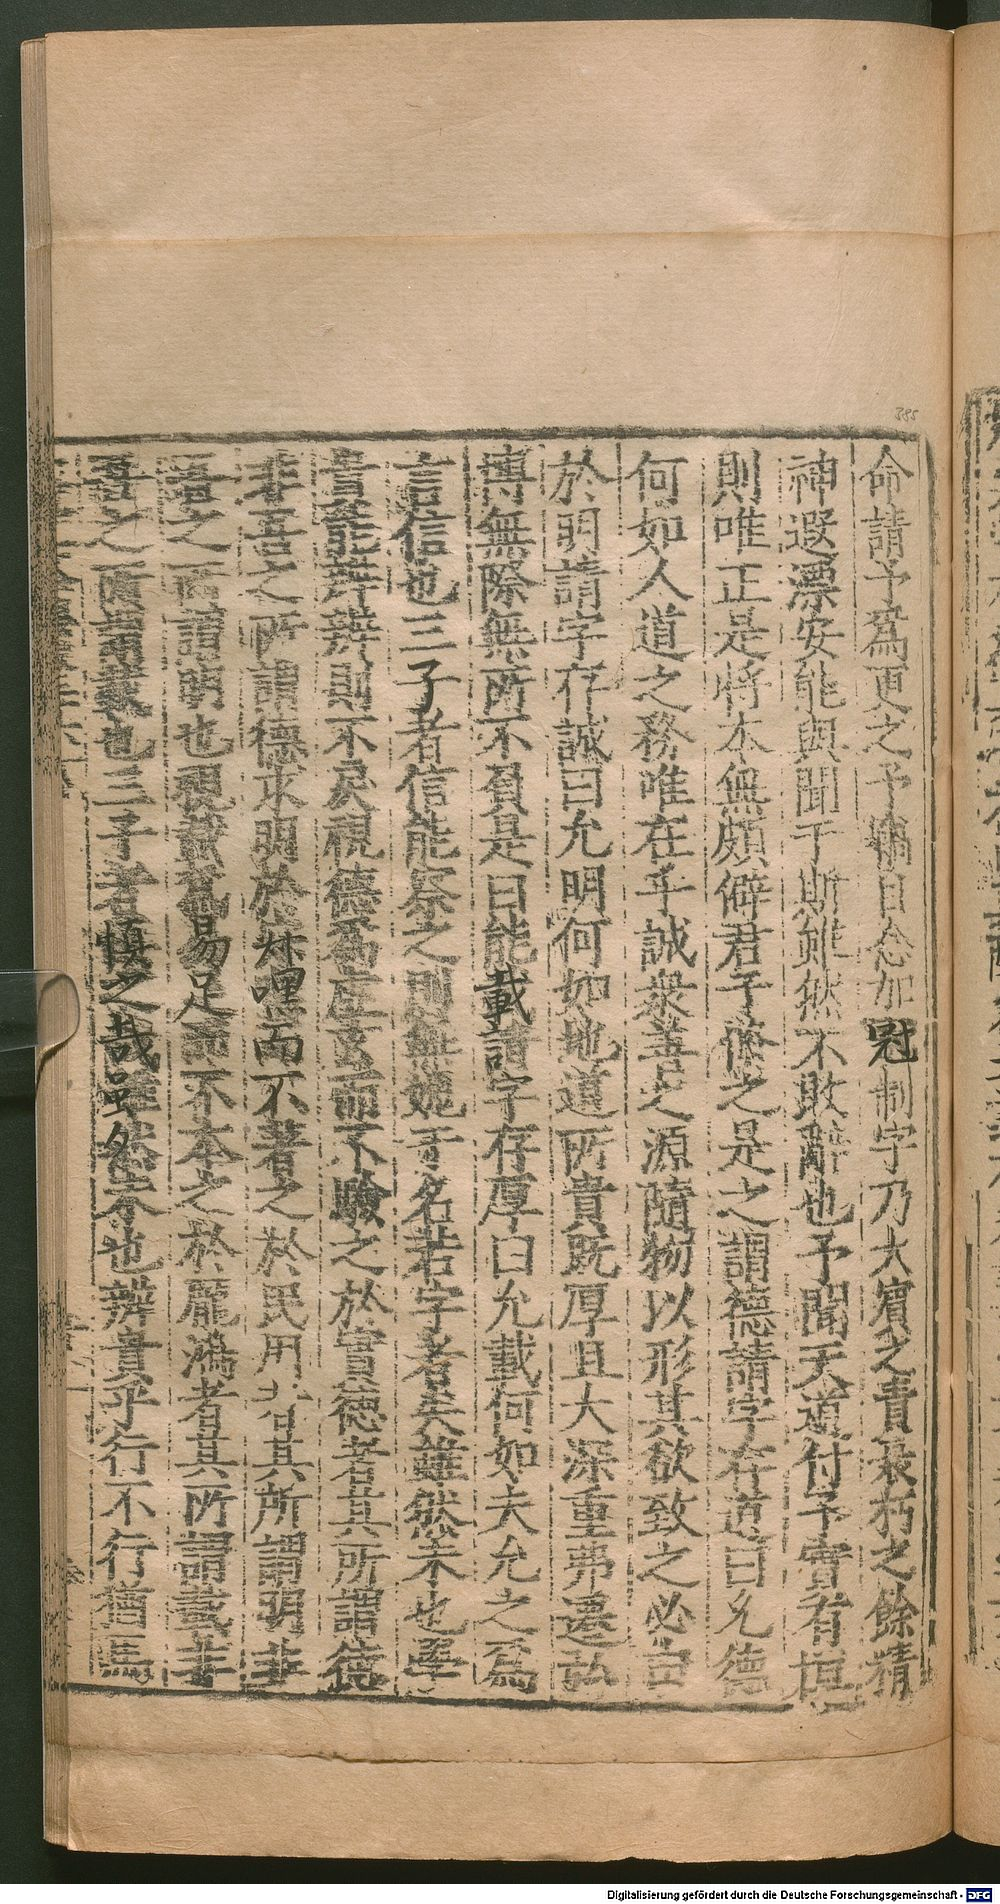 命請予爲更之予繙日念加冠制字乃大賓之責衰朽之餘精
神遐漂安能與聞于斯雖然不敢辭也予聞天道付予實有恒
則唯正是將本無頗僻君子脩之是之謂德請字存道曰允德
何如人道之務唯在乎誠衆善之源隨物以形其欲致之必
於明請字存誠曰允明何如地道所貴旣厚且大深重弗遷
博無際無所不負是曰能載請字存厚曰允載何如夫允之爲
言信也三子者信能察之則無媿于名若字者矣雖然未也學
貴能辨辨則不戾視德爲虛玄而不驗之於實德者其所謂德
非吾之所謂德求明於 而不著之於民用者其所謂明非
吾之所謂明也視載爲易足而不本之於龎鴻者其所謂載非
吾之所謂載也三子者愼之哉雖然未也辨貴乎行不行猶
385
Digitalisierung gefördert durch die Deutsche Forschungsgemeinschaft - DFG